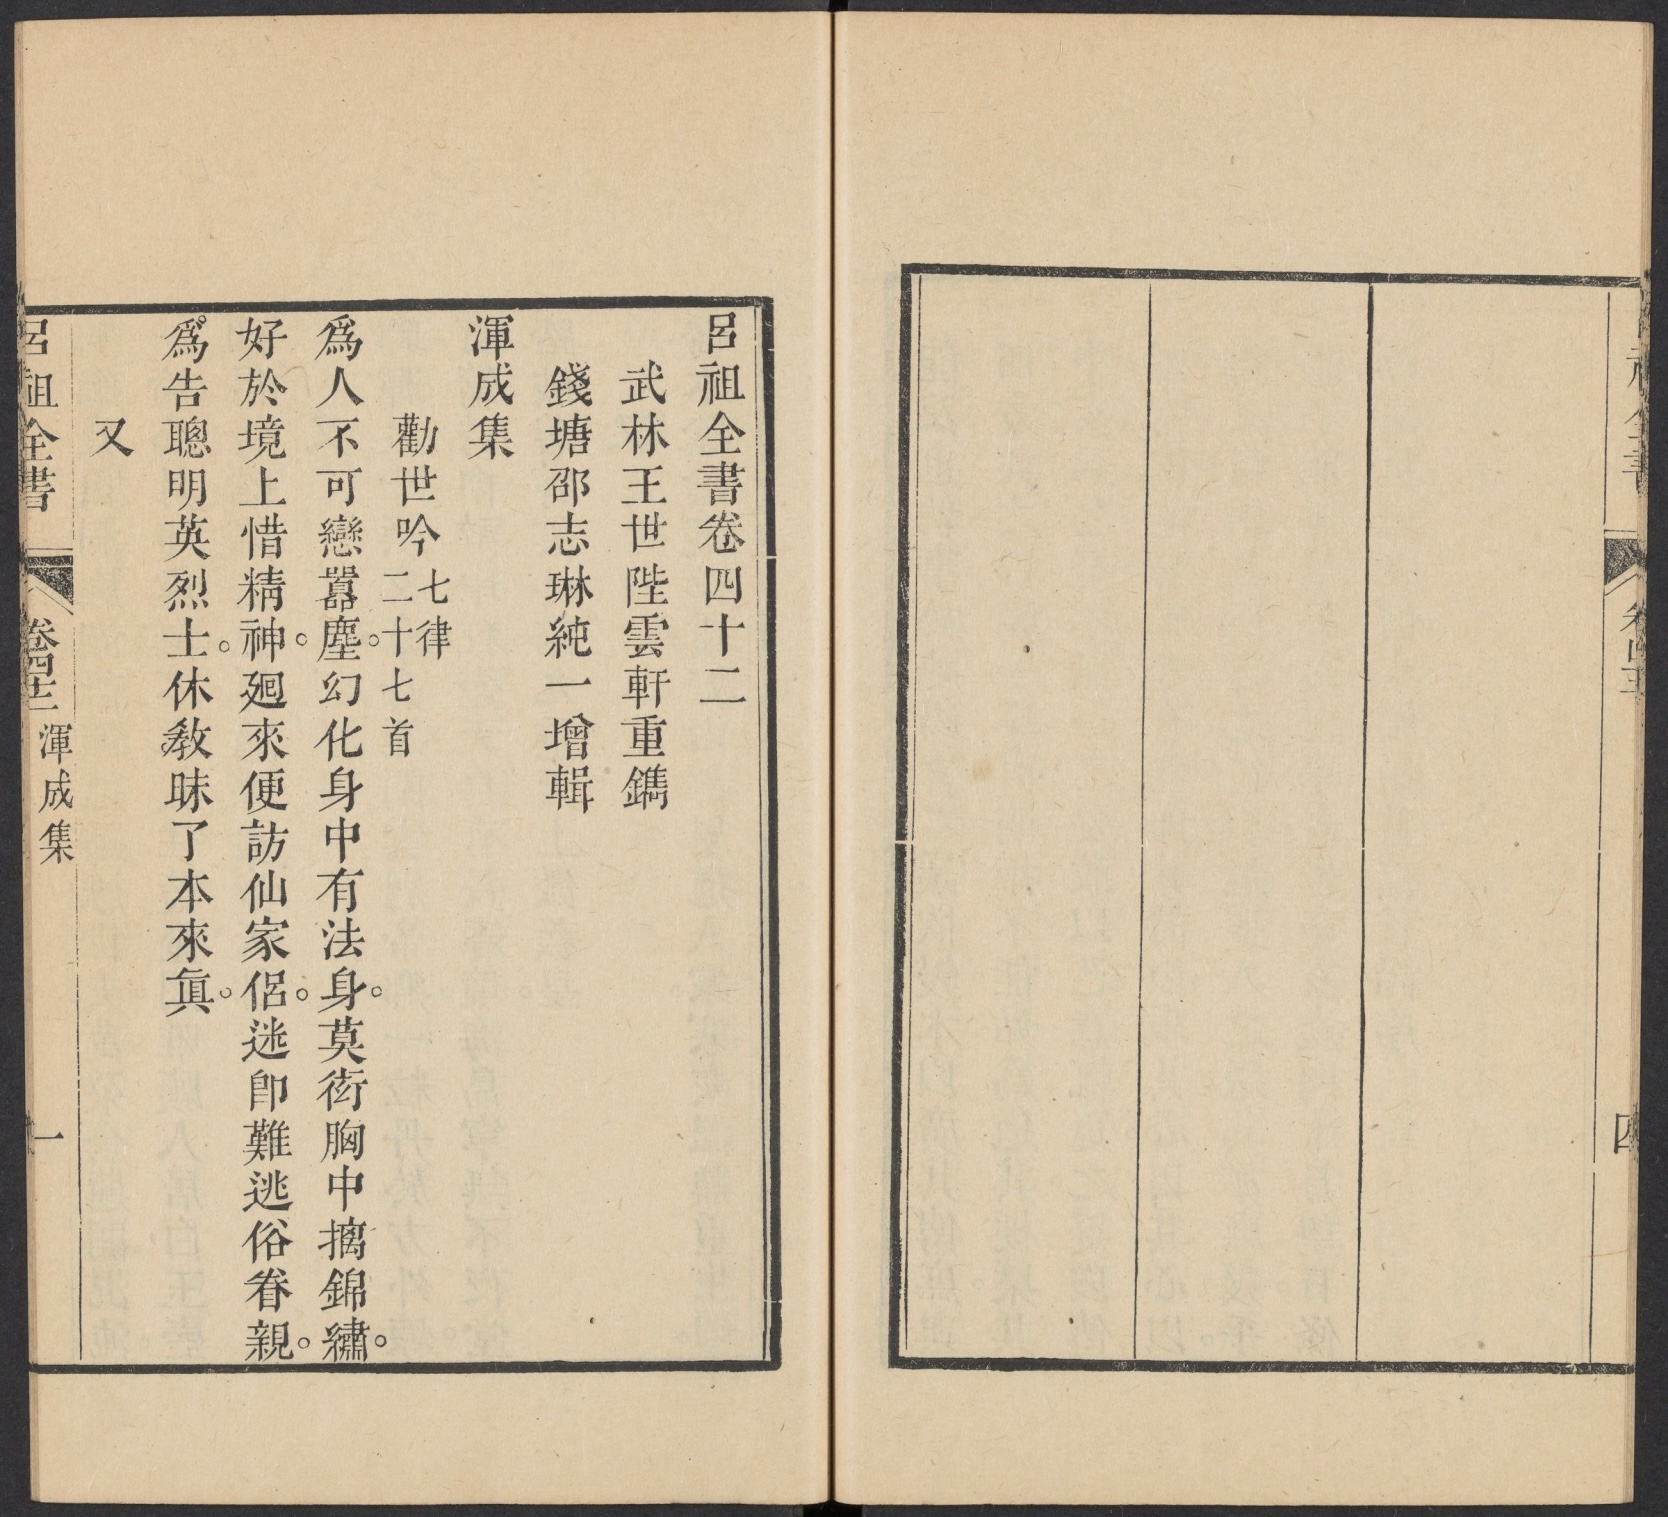 四
呂祖全書卷四十二
武林王世陛雲軒重鐫
錢塘邵志琳純一增輯
渾成集
勸世吟七律二十七首
爲人不可戀囂塵。幻化身中有法身。莫衒胸中摛錦繡。
好於境上惜精神。廻來便訪仙家侶。迷即難逃俗眷親。
爲告聰明英烈士。休教昧了本來眞。
又
呂祖全書 卷四十二 渾成集 一